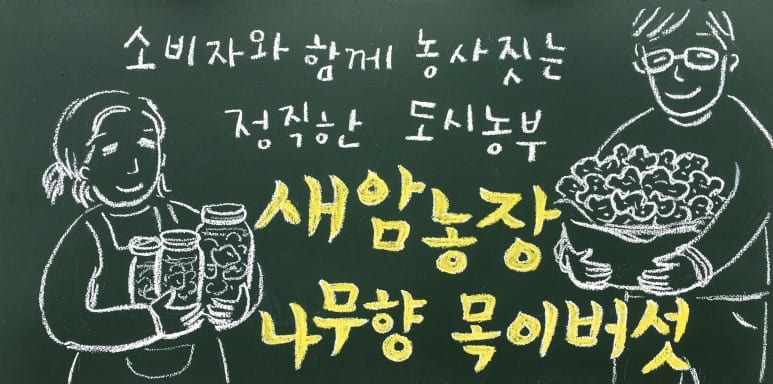 소비자와 함께 농사짓는
정직한 도시농부
새암농장
나무향 목이버섯